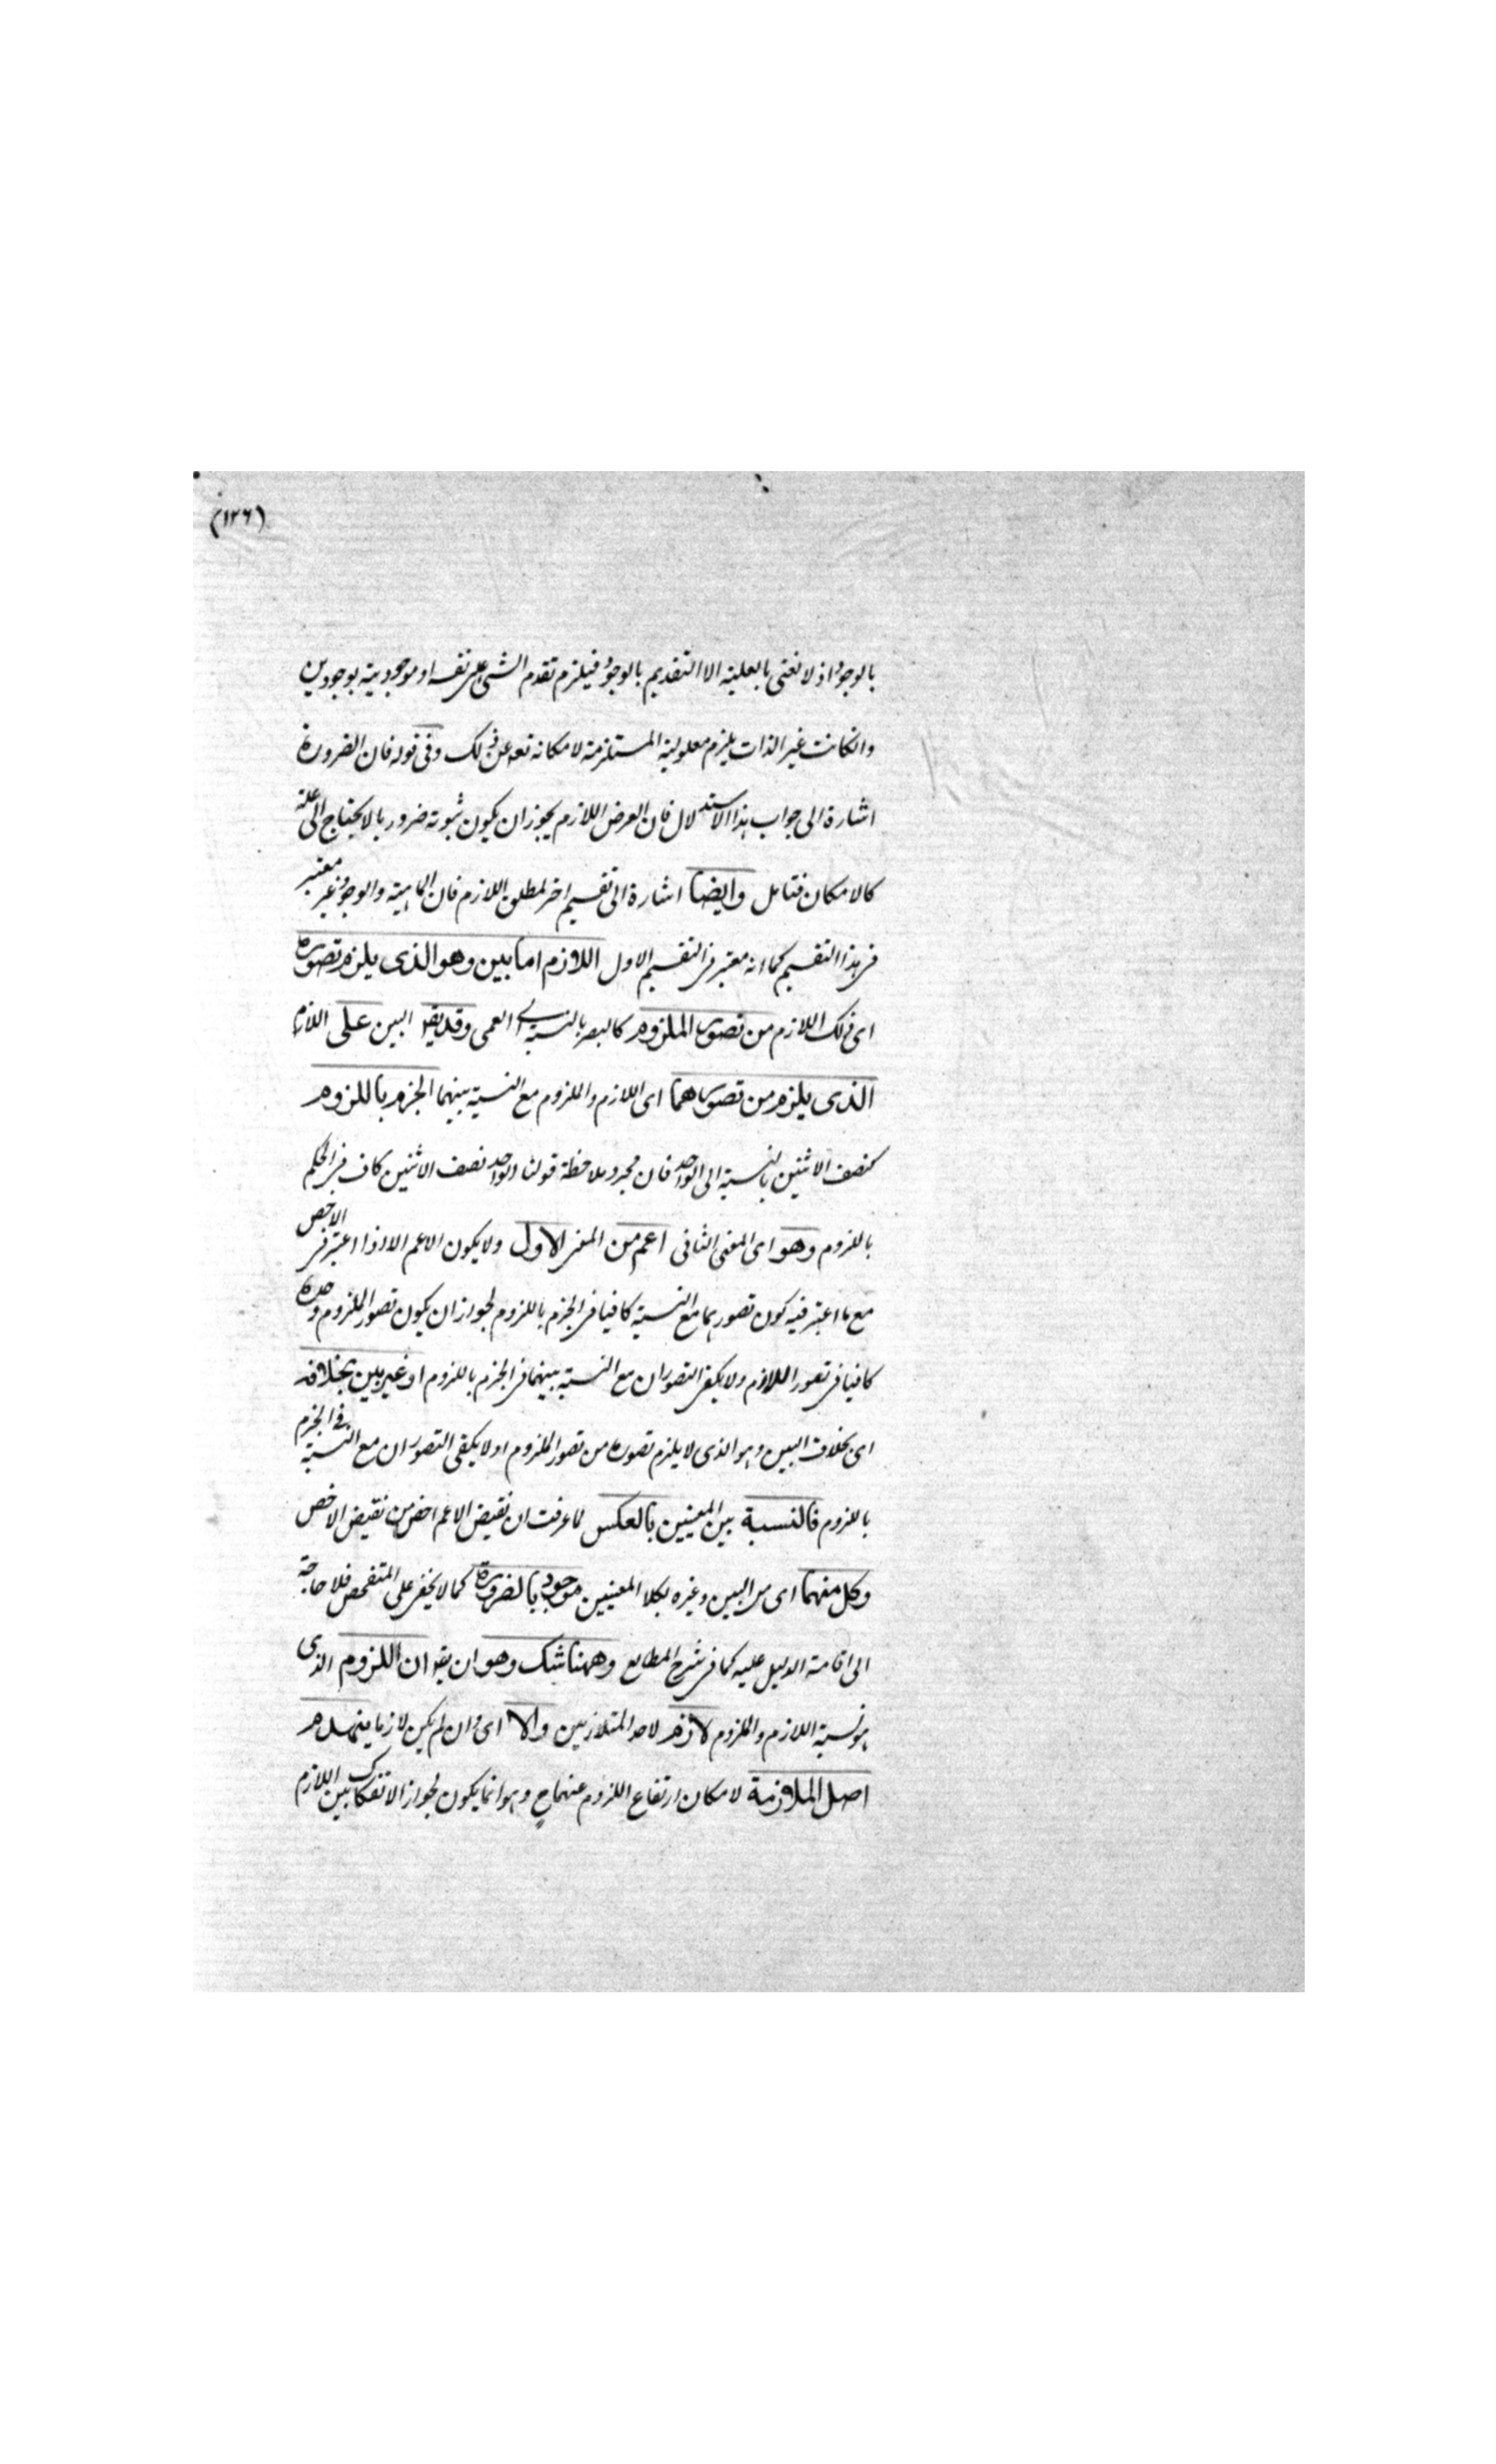 (١٢٦)
بالوجود اذ لا نعنى بالعلية الا التقديم بالوجود فيلزم تقدم الشئ على نفسه او موجودية بوجودين
وانكانت غير الذات يلزم معلولية المستلزمة لامكانه تعه عن ذلك وفى قوله فان الضرورة
اشارة الى جواب هذا الاستدلال فان العرض اللازم يجوز ان يكون ثبوته ضروريا لا يحتاج الى علة
كالامكان فتامل وايضا اشارة الى تقسيم اخر لمطلق اللازم فان الماهية والوجود غير معتبر
فى هذا التقسيم كما انه معتبر فى التقسيم الاول اللازم اما بين وهو الذى يلزم تصوره
اى ذلك اللازم من تصور الملزوم كالبصر بالنسبة الى العمى وقد يقو البين على اللازم
الذى يلزم من تصورهما اى اللازم والملزوم مع النسبة بينهما الجزم باللزوم
كنصف الاثنين بالنسبة الى الواحد فان مجرد ملاحظة قولنا الواحد نصف الاثنين كاف فى الحكم
باللزوم وهو اى المعنى الثانى اعم من المعنى الاول ولا يكون الاعم الا اذا اعتبر فى الاخص
مع ما اعتبر فيه كون تصورهما مع النسبة كافيا فى الجزم باللزوم لجواز ان يكون تصور الملزوم وحده
كافيا فى تصور اللازم ولا يكفى التصوران مع النسبة بينهما فى الجزم باللزوم او غير بين بخلافه
اى بخلاف البين وهو الذى لا يلزم تصوره من تصور الملزوم او لا يكفى التصوران مع النسبة فى الجزم
باللزوم فالنسبة بين المعنيين بالعكس لما عرفت ان نقيض الاعم اخص من نقيض الاخص
وكل منهما اى من البين وغيره بكلا المعنيين موجود بالضرورة كما لا يخفى على المتفحص فلا حاجة
الى اقامة الدليل عليه كما فى شرح المطالع وههنا شك وهو ان يقو ان اللزوم الذى
هو نسبة اللازم والملزوم لازم لاحد المتلازمين والا اى وان لم يكن لازما ينهدم
اصل الملازمة لامكان ارتفاع اللزوم عنهما ح وهو انما يكون لجواز الانفكاك بين اللازم